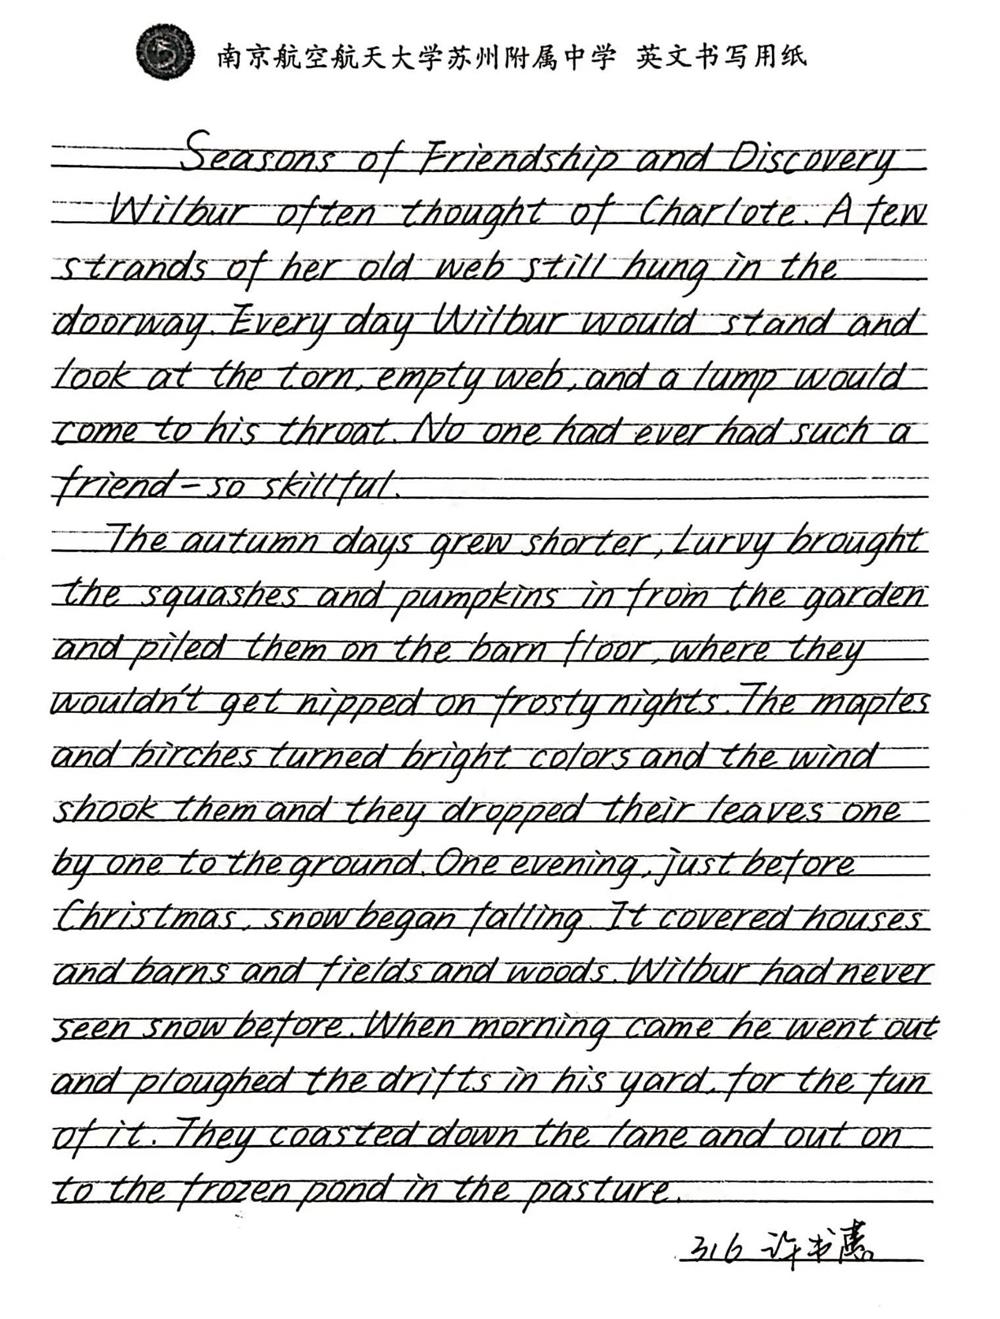 南京航空航天大学苏州附属中学 英文书写用纸
Seasons of Friendship and Discovery
Wilbur often thought of Charlote. A few
strands of her old web still hung in the
doorway. Every day Wilbur would stand and
look at the torn, empty web, and a lump would
come to his throat. No one had ever had such a
friend – so skillful.
The autumn days grew shorter, Lurvy brought
the squashes and pumpkins in from the garden
and piled them on the barn floor, where they
wouldn't get nipped on frosty nights. The maples
and birches turned bright colors and the wind
shook them and they dropped their leaves one
by one to the ground. One evening, just before
Christmas, snow began falling. It covered houses
and barns and fields and woods. Wilbur had never
seen snow before. When morning came he went out
and ploughed the drifts in his yard, for the fun
of it. They coasted down the lane and out on
to the frozen pond in the pasture.
316 许书